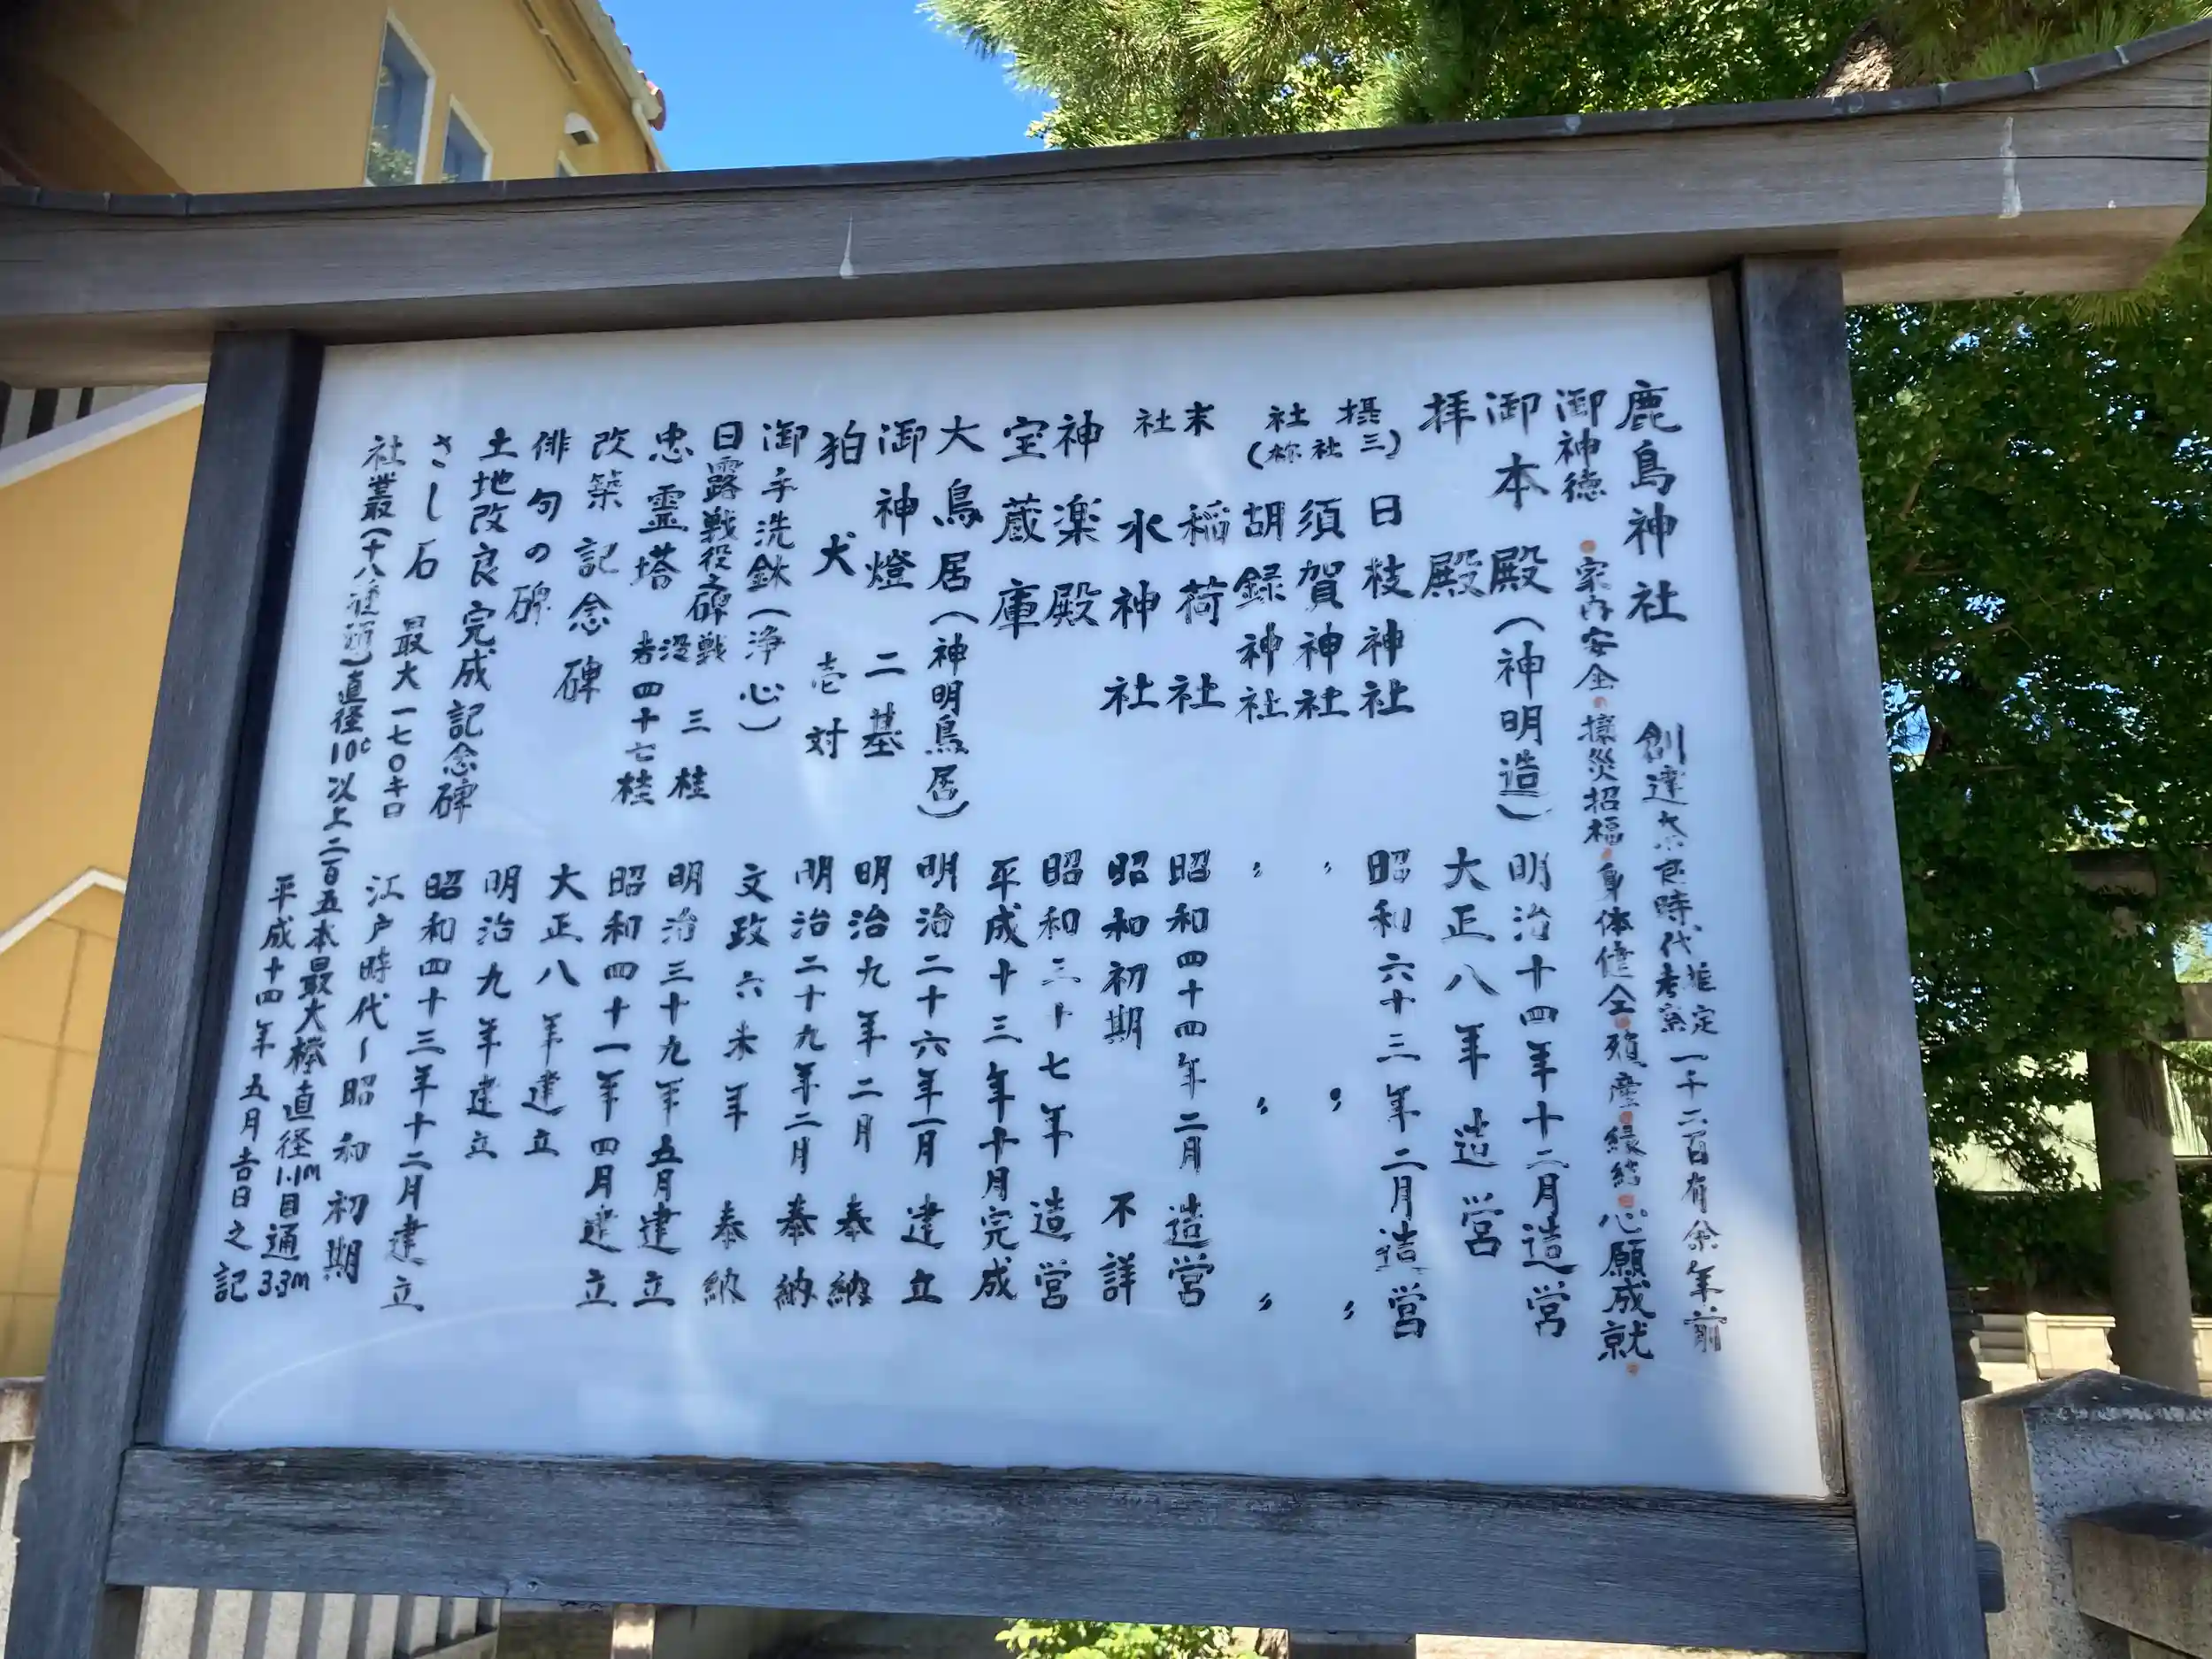 鹿島神社 創建奈良時代推定考察一千二百有余年前
御神徳 家内安全 攘災招福 身体健全 殖産 縁結 心願成就
御本殿(神明造) 明治十四年十二月造営
拝殿 大正八年造営
摂社(三社祢) 日枝神社 昭和六十三年二月造営
須賀神社 〃 〃 〃
胡録神社 〃 〃 〃
末社 稲荷社 昭和四十四年二月造営
水神社 昭和初期 不詳
神楽殿 昭和三十七年 造営
宝蔵庫 平成十三年十月完成
大鳥居(神明鳥居) 明治二十六年一月建立
御神燈 二基 明治九年二月 奉納
狛犬 壱対 明治二十九年二月 奉納
御手洗鉢(浄心) 文政六未年 奉納
日露戦役之碑 戦没者 三桂 明治三十九年五月建立
忠霊塔 四十七桂 昭和四十一年四月建立
改築記念碑 大正八年建立
俳句の碑 明治九年建立
土地改良完成記念碑 昭和四十三年十二月建立
さし石 最大一七〇キロ 江戸時代~昭和初期
社叢(十八種類)直径10c以上二百五本最大欅直径1.1m目通3.3m
平成十四年五月吉日之記